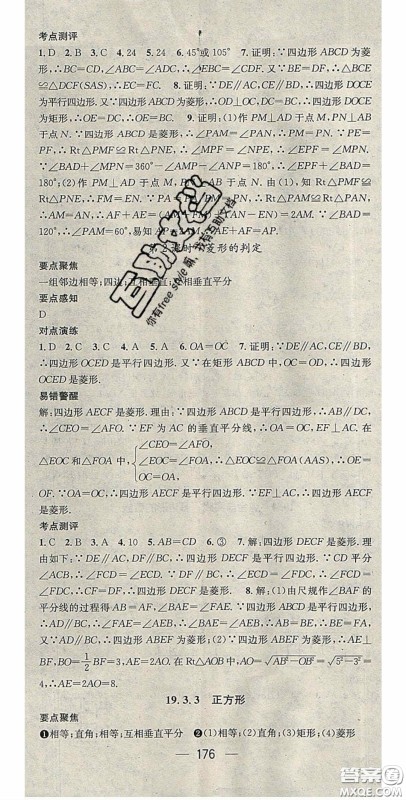 考点测评
1. D 2. B 3. C 4. 24 5. 24 6. 45°或 105° 7. 证明:∵四边形 ABCD 为菱
形,∴BC=DC,∠ABC=∠ADC,∴∠CBE=∠CDF. 又 BE=DF,∴△BCE
≌△DCF(SAS),∴CE=CF. 8. 证明:∵DE∥AC,CE∥BD,∴四边形 DOCE
为平行四边形. 又∵四边形 ABCD 为菱形,∴OD⊥OC,∴∠DOC=90°,∴四边形 DOCE
为矩形,∴OE=DC,∴OE=BC. 9. 证明:(1)作 PM⊥AD 于点 M,PN⊥AB
于点 N. ∵四边形 ABCD 是菱形,∴∠PAM=∠PAN,∴PM=PN. 又∵PE=
PF,∴Rt△PMF≌Rt△PNE,∴∠MPF=∠NPE,∴∠EPF=∠MPN.
∵∠BAD+∠MPN=360°-∠AMP-∠ANP=180°,∴∠EPF+∠BAD=
180°;(2)作 PM⊥AD 于点 M,PN⊥AB 于点 N. 由(1),知 Rt△PMF≌
=2AM. ∵∠PAM=60°,易知
课时 菱形的判定
要点聚焦
一组邻边相等;四边;互相垂直;互相垂直平分
要点感知
D
对点演练
1. D 2. C 3. C 4. A 5. A 6. OA=OC 7. 证明:∵DE∥AC,CE∥BD,∴四
边形 OCED 是平行四边形. 又∵在矩形 ABCD 中,OD=OC,∴四边形 OCED
是菱形.
易错警醒
解:四边形 AECF 是菱形. 理由:∵四边形 ABCD 是平行四边形,∴AD∥BC,
∴∠CEO=∠AFO. ∵EF 为 AC 的垂直平分线,∴OA=OC,EF⊥AC. 在
∠CEO=∠AFO,
△EOC 和△FOA 中, ∠EOC=∠FOA, ∴△EOC≌△FOA(AAS),∴OE=
OC=OA,
OF. 又∵OA=OC,∴四边形 AECF 是平行四边形,∴四边形 AECF 是菱形.
考点测评
1. C 2. B 3. A 4. 10 5. AB=CD 6. ③ 7. 解:四边形 DECF 是菱形. 理
由如下:∵DE∥AC,DF∥BC,∴四边形 DECF 是平行四边形. ∵CD 平分
∠ACB,∴∠FCD=∠ECD. ∵DF∥BC,∴∠FDC=∠ECD,∴∠FCD=
∠FDC,∴CF=DF,∴四边形 DECF 是菱形. 8. 解:(1)由尺规作∠BAF 的
平分线的过程得 AB=AF,∠BAE=∠FAE. ∵四边形 ABCD 是平行四边形,
∴AD∥BC,∴∠FAE=∠AEB,∴∠BAE=∠AEB,∴AB=BE,∴BE=
FA,∴四边形 ABEF 是菱形;(2)∵四边形 ABEF 为菱形,∴AE⊥
BF,BO=1/2BF=3,AE=2AO. 在 Rt△AOB 中,AO=√(AB²-BO²)=√(5²-3²)=
4,∴AE=2AO=8.
19.3.3 正方形
要点聚焦
❶相等;直角;相等;互相垂直平分 ❷(1)菱形;(2)直角;(3)矩形;(4)菱形
176